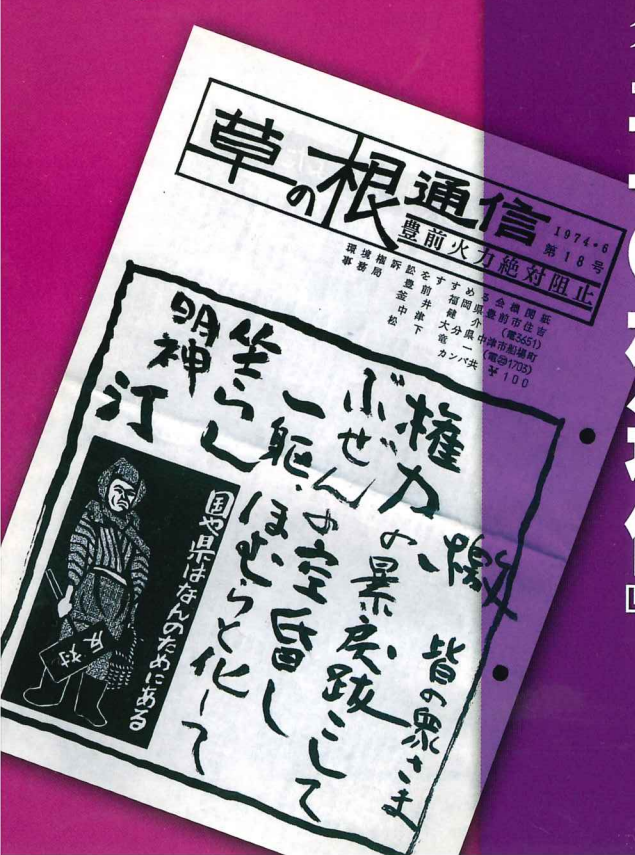 草の根通信
1974・6
第18号
豊前火力絶対阻止
環境権訴訟をすすめる会機関紙
事務局 福岡県豊前市住吉
釜井健介(電3651)
大分県中津市船場町
松下竜一
カンパ共 ¥100
檄
皆の衆さま
権力の暴戻跋こして
ぶぜんの空昏し
一躯、ほむらと化して
笠らし
明神汀
国や県はなんのためにある
反対